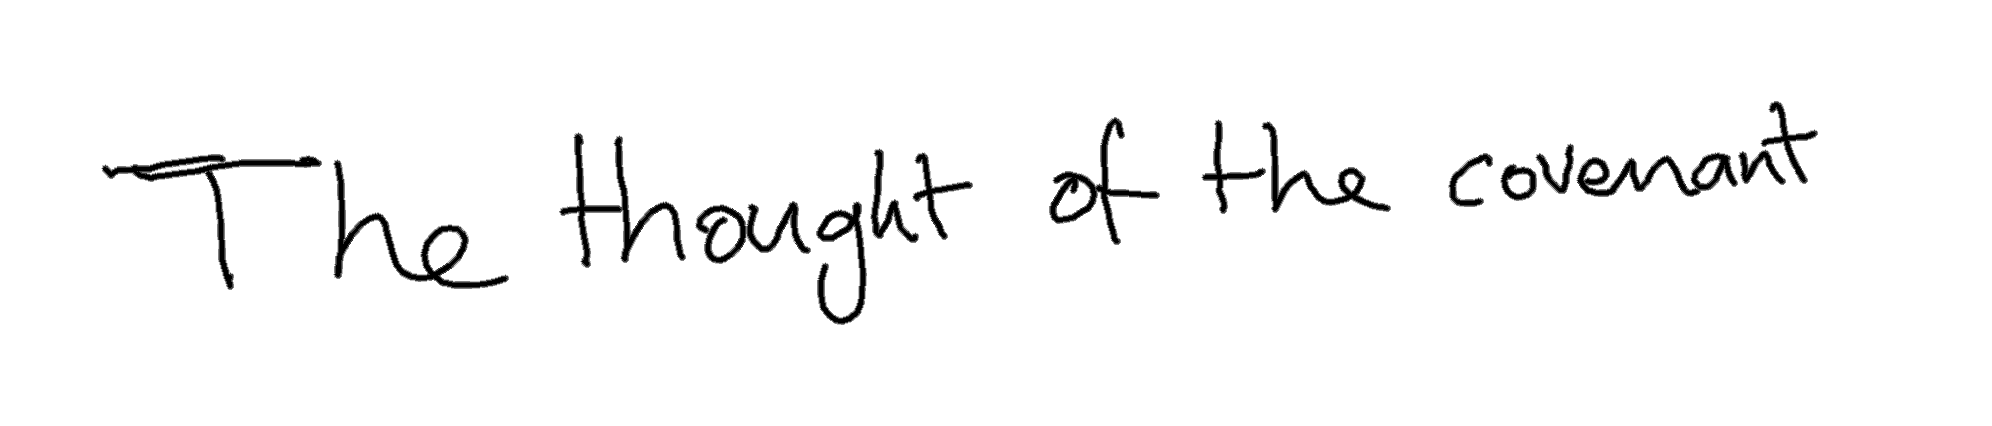 The thought of the covenant